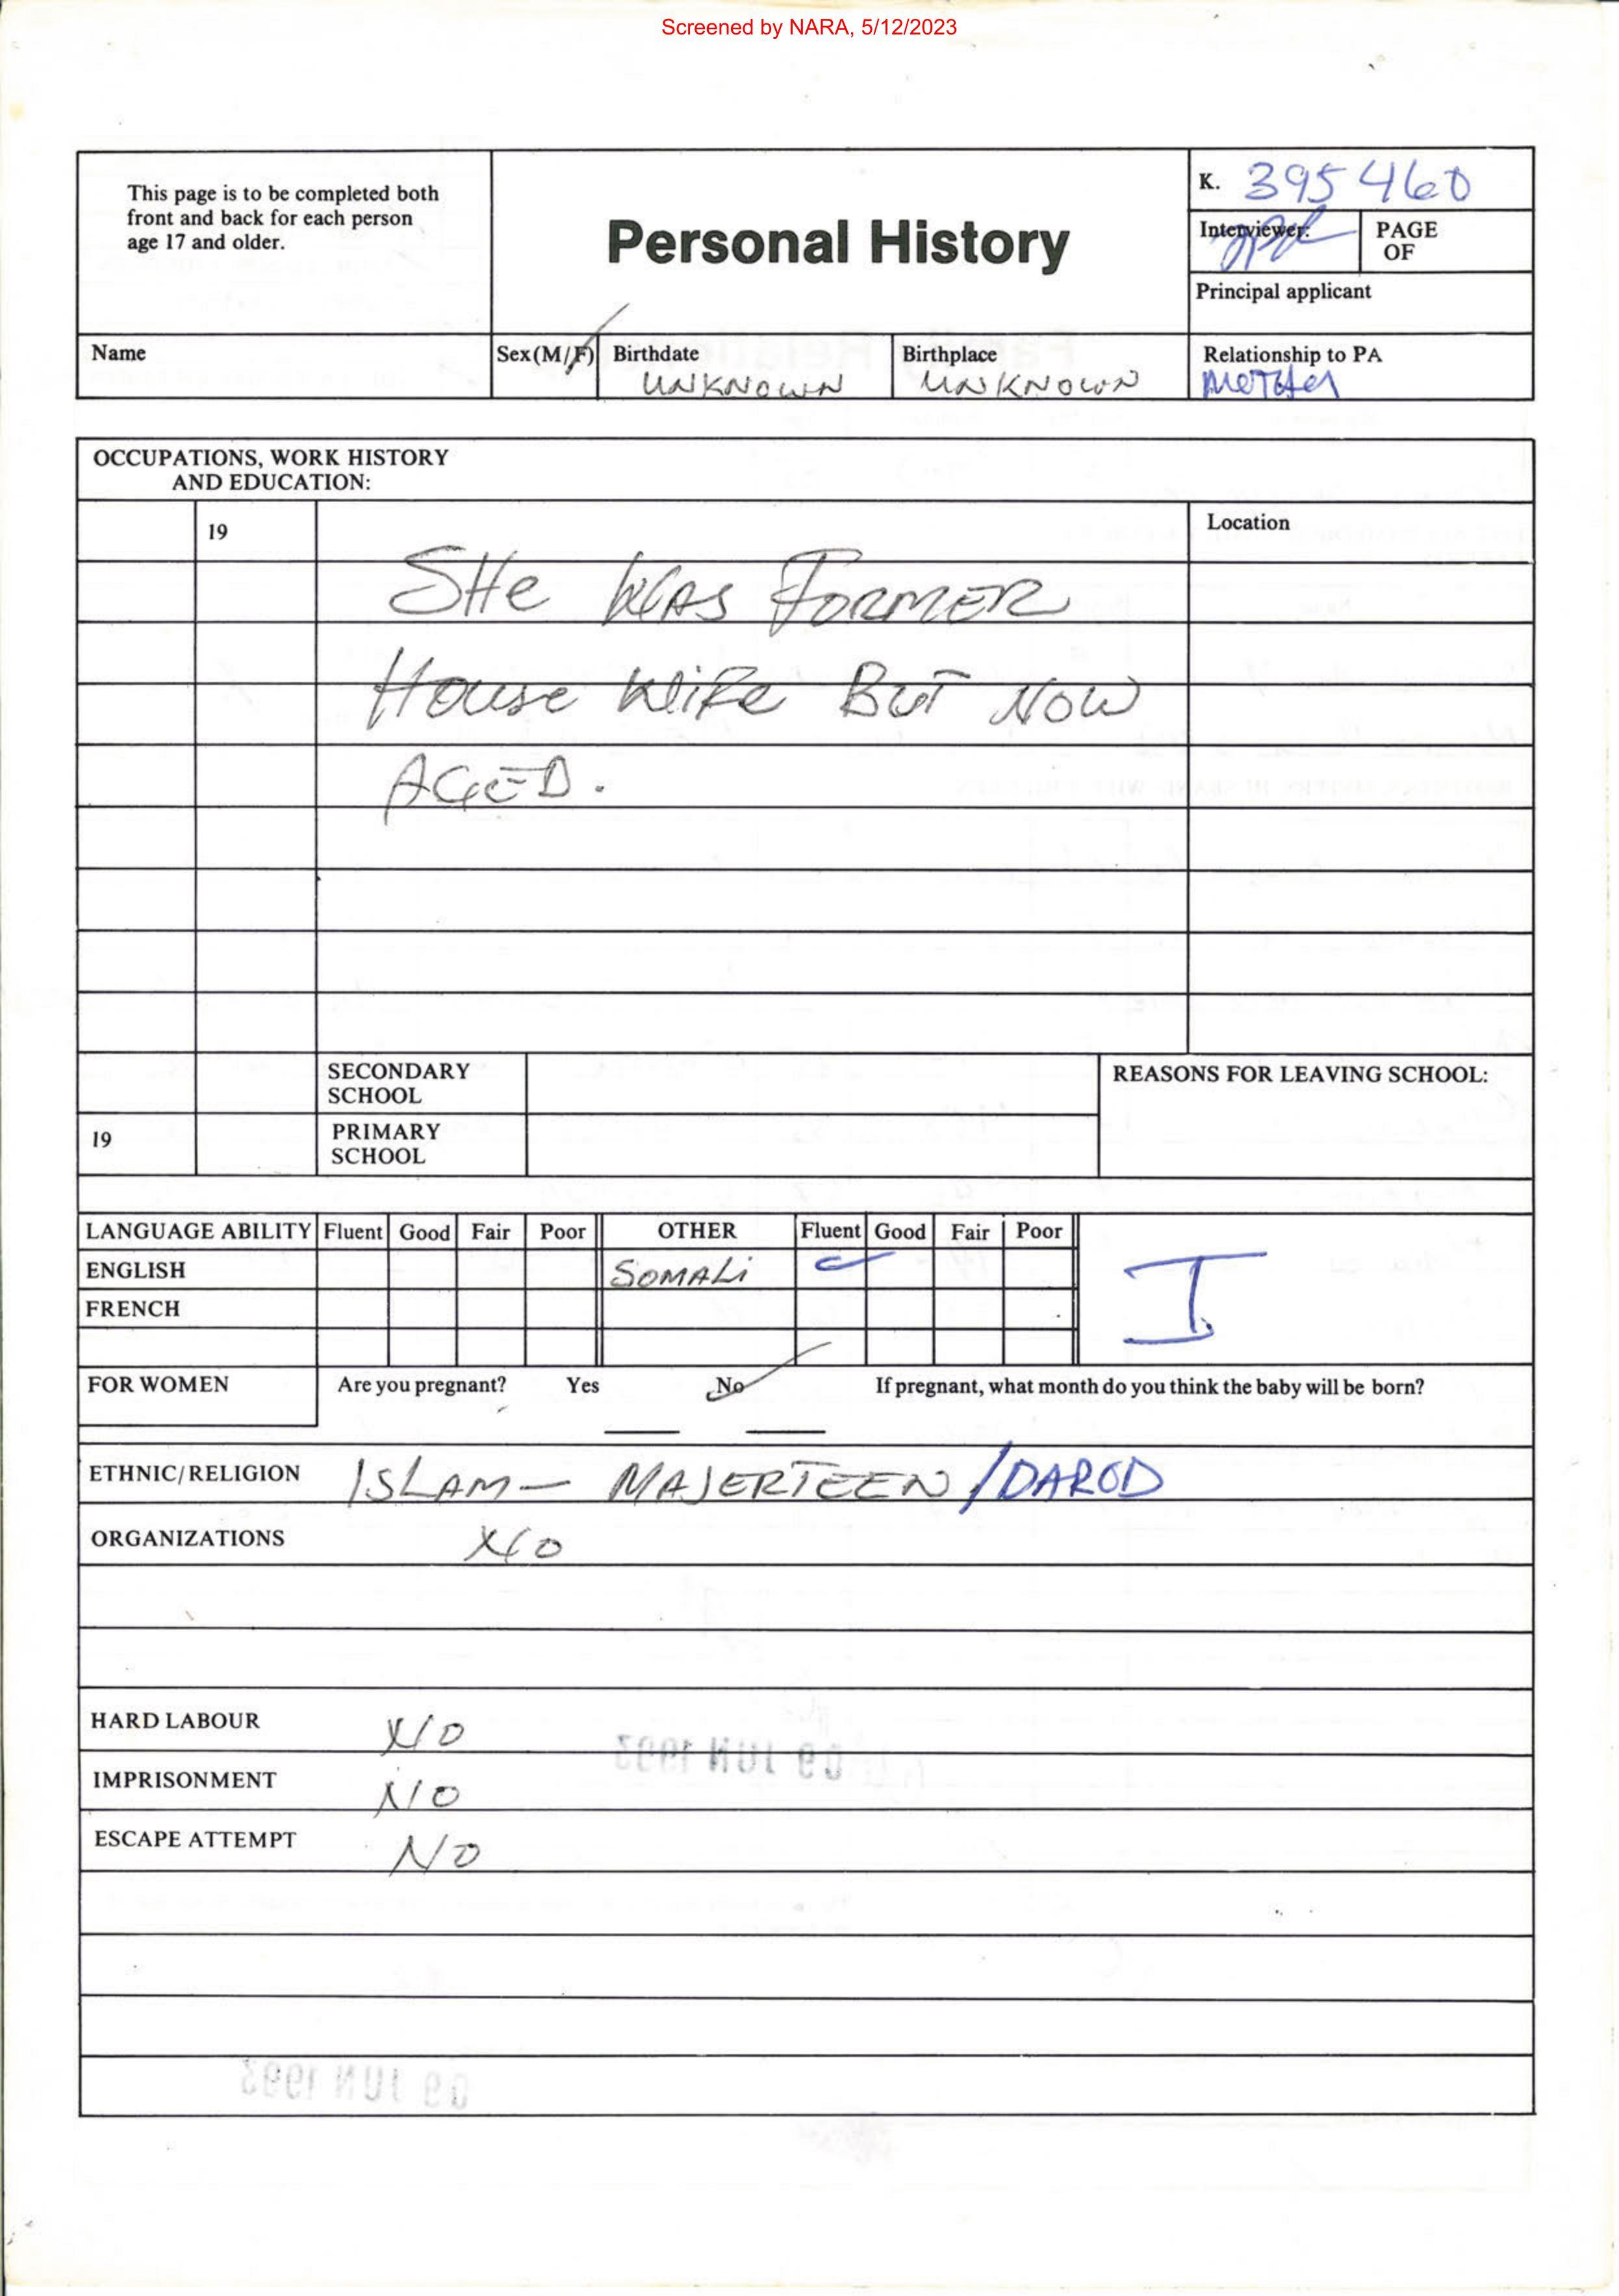 Screened by NARA, 5/12/2023
This page is to be completed both
front and back for each person
age 17 and older.
Personal History
K. 395460
Interviewer:
PAGE
OF
Principal applicant
Name
Sex(M/F)
Birthdate
UNKNOWN
Birthplace
UNKNOWN
Relationship to PA
MOTHER
OCCUPATIONS, WORK HISTORY
AND EDUCATION:
19
Location
SHe WAS FORMER
House Wife BUT NOW
AGED.
SECONDARY
SCHOOL
REASONS FOR LEAVING SCHOOL:
19
PRIMARY
SCHOOL
LANGUAGE ABILITY Fluent Good Fair Poor OTHER Fluent Good Fair Poor
ENGLISH
SOMALi
I
FRENCH
FOR WOMEN Are you pregnant? Yes No If pregnant, what month do you think the baby will be born?
ETHNIC/RELIGION ISLAM – MAJERTEEN /DAROD
ORGANIZATIONS NO
HARD LABOUR NO
09 JUN 1993
IMPRISONMENT NO
ESCAPE ATTEMPT NO
09 JUN 1993